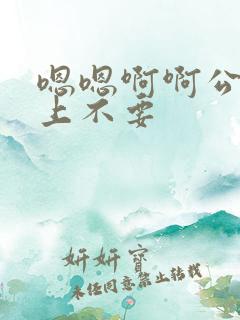 嗯嗯啊啊公
上不要
妍妍寶
未经同意禁止转载